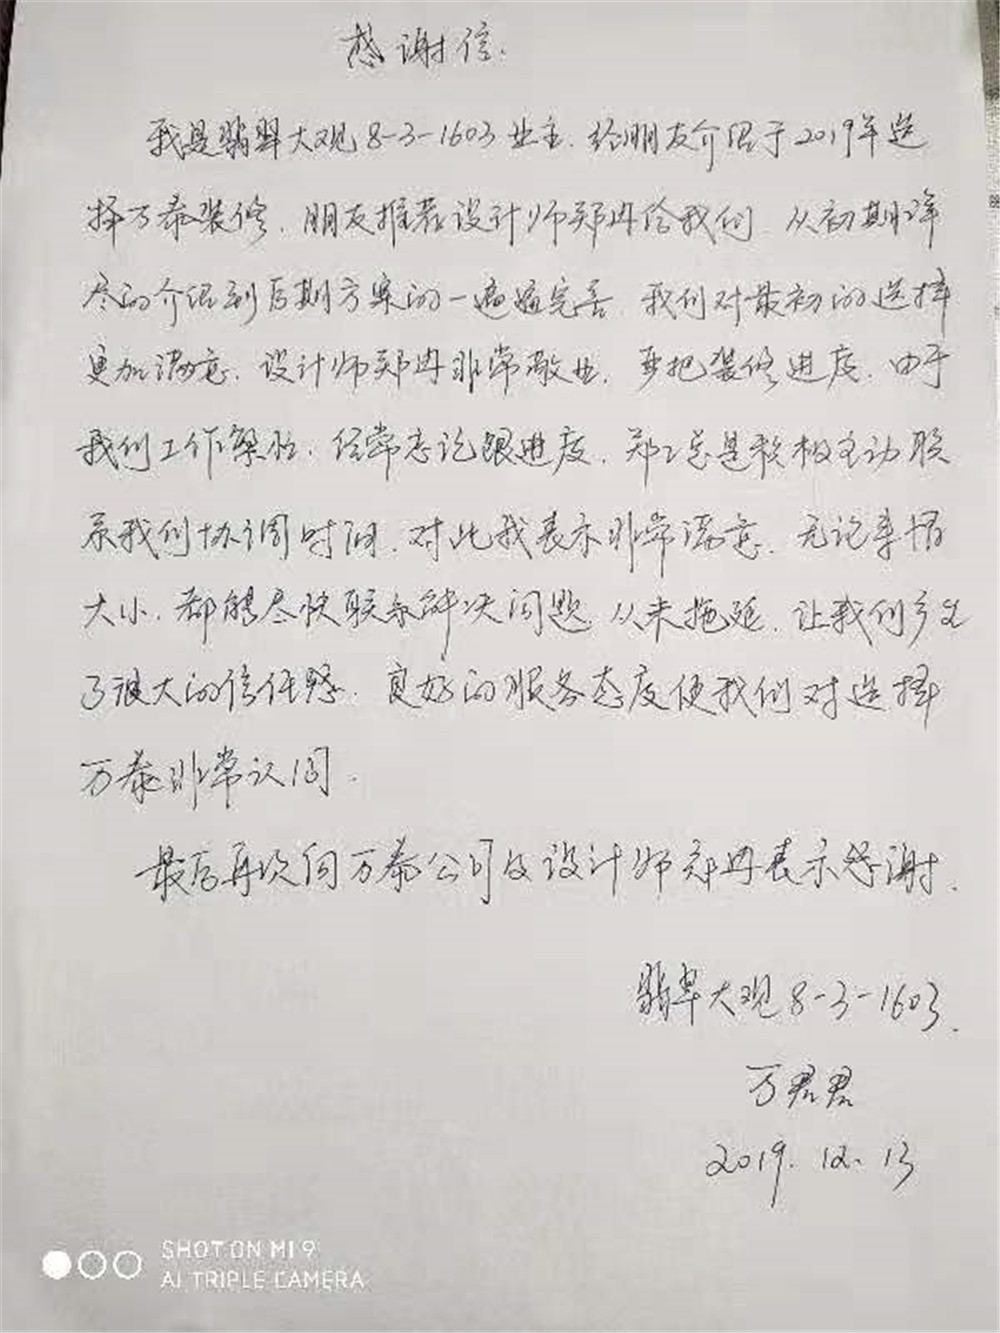 感谢信.
我是翡翠大观8-3-1603业主.经朋友介绍于2019年选
择万泰装修.朋友推荐设计师郑冉给我们.从初期详
尽的介绍到后期方案的一遍遍完善.我们对最初的选择
更加满意.设计师郑冉非常敬业.把装修进度.由于
我们工作繁忙.经常忘记跟进度.郑工总是积极主动联
系我们协调时间.对此我表示非常满意.无论事情
大小.都能尽快联系解决问题.从未拖延.让我们产生
了很大的信任感.良好的服务态度使我们对选择
万泰非常认同.
最后再次向万泰公司及设计师郑冉表示感谢.
翡翠大观8-3-1603.
万君君
2019.12.13
SHOT ON MI 9
AI TRIPLE CAMERA